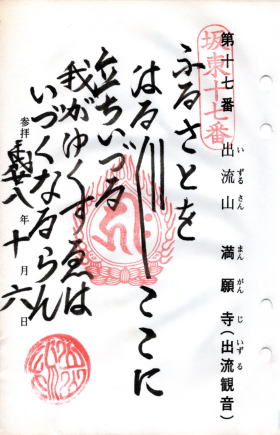 坂東十七番
第十七番 出流山 満願寺(出流観音)
いずるさん まんがんじ いずる
ふるさとを
はる〲ここに
立ちいづる
我がゆくすゑは
いづくなるらん
参拝 年十月六日